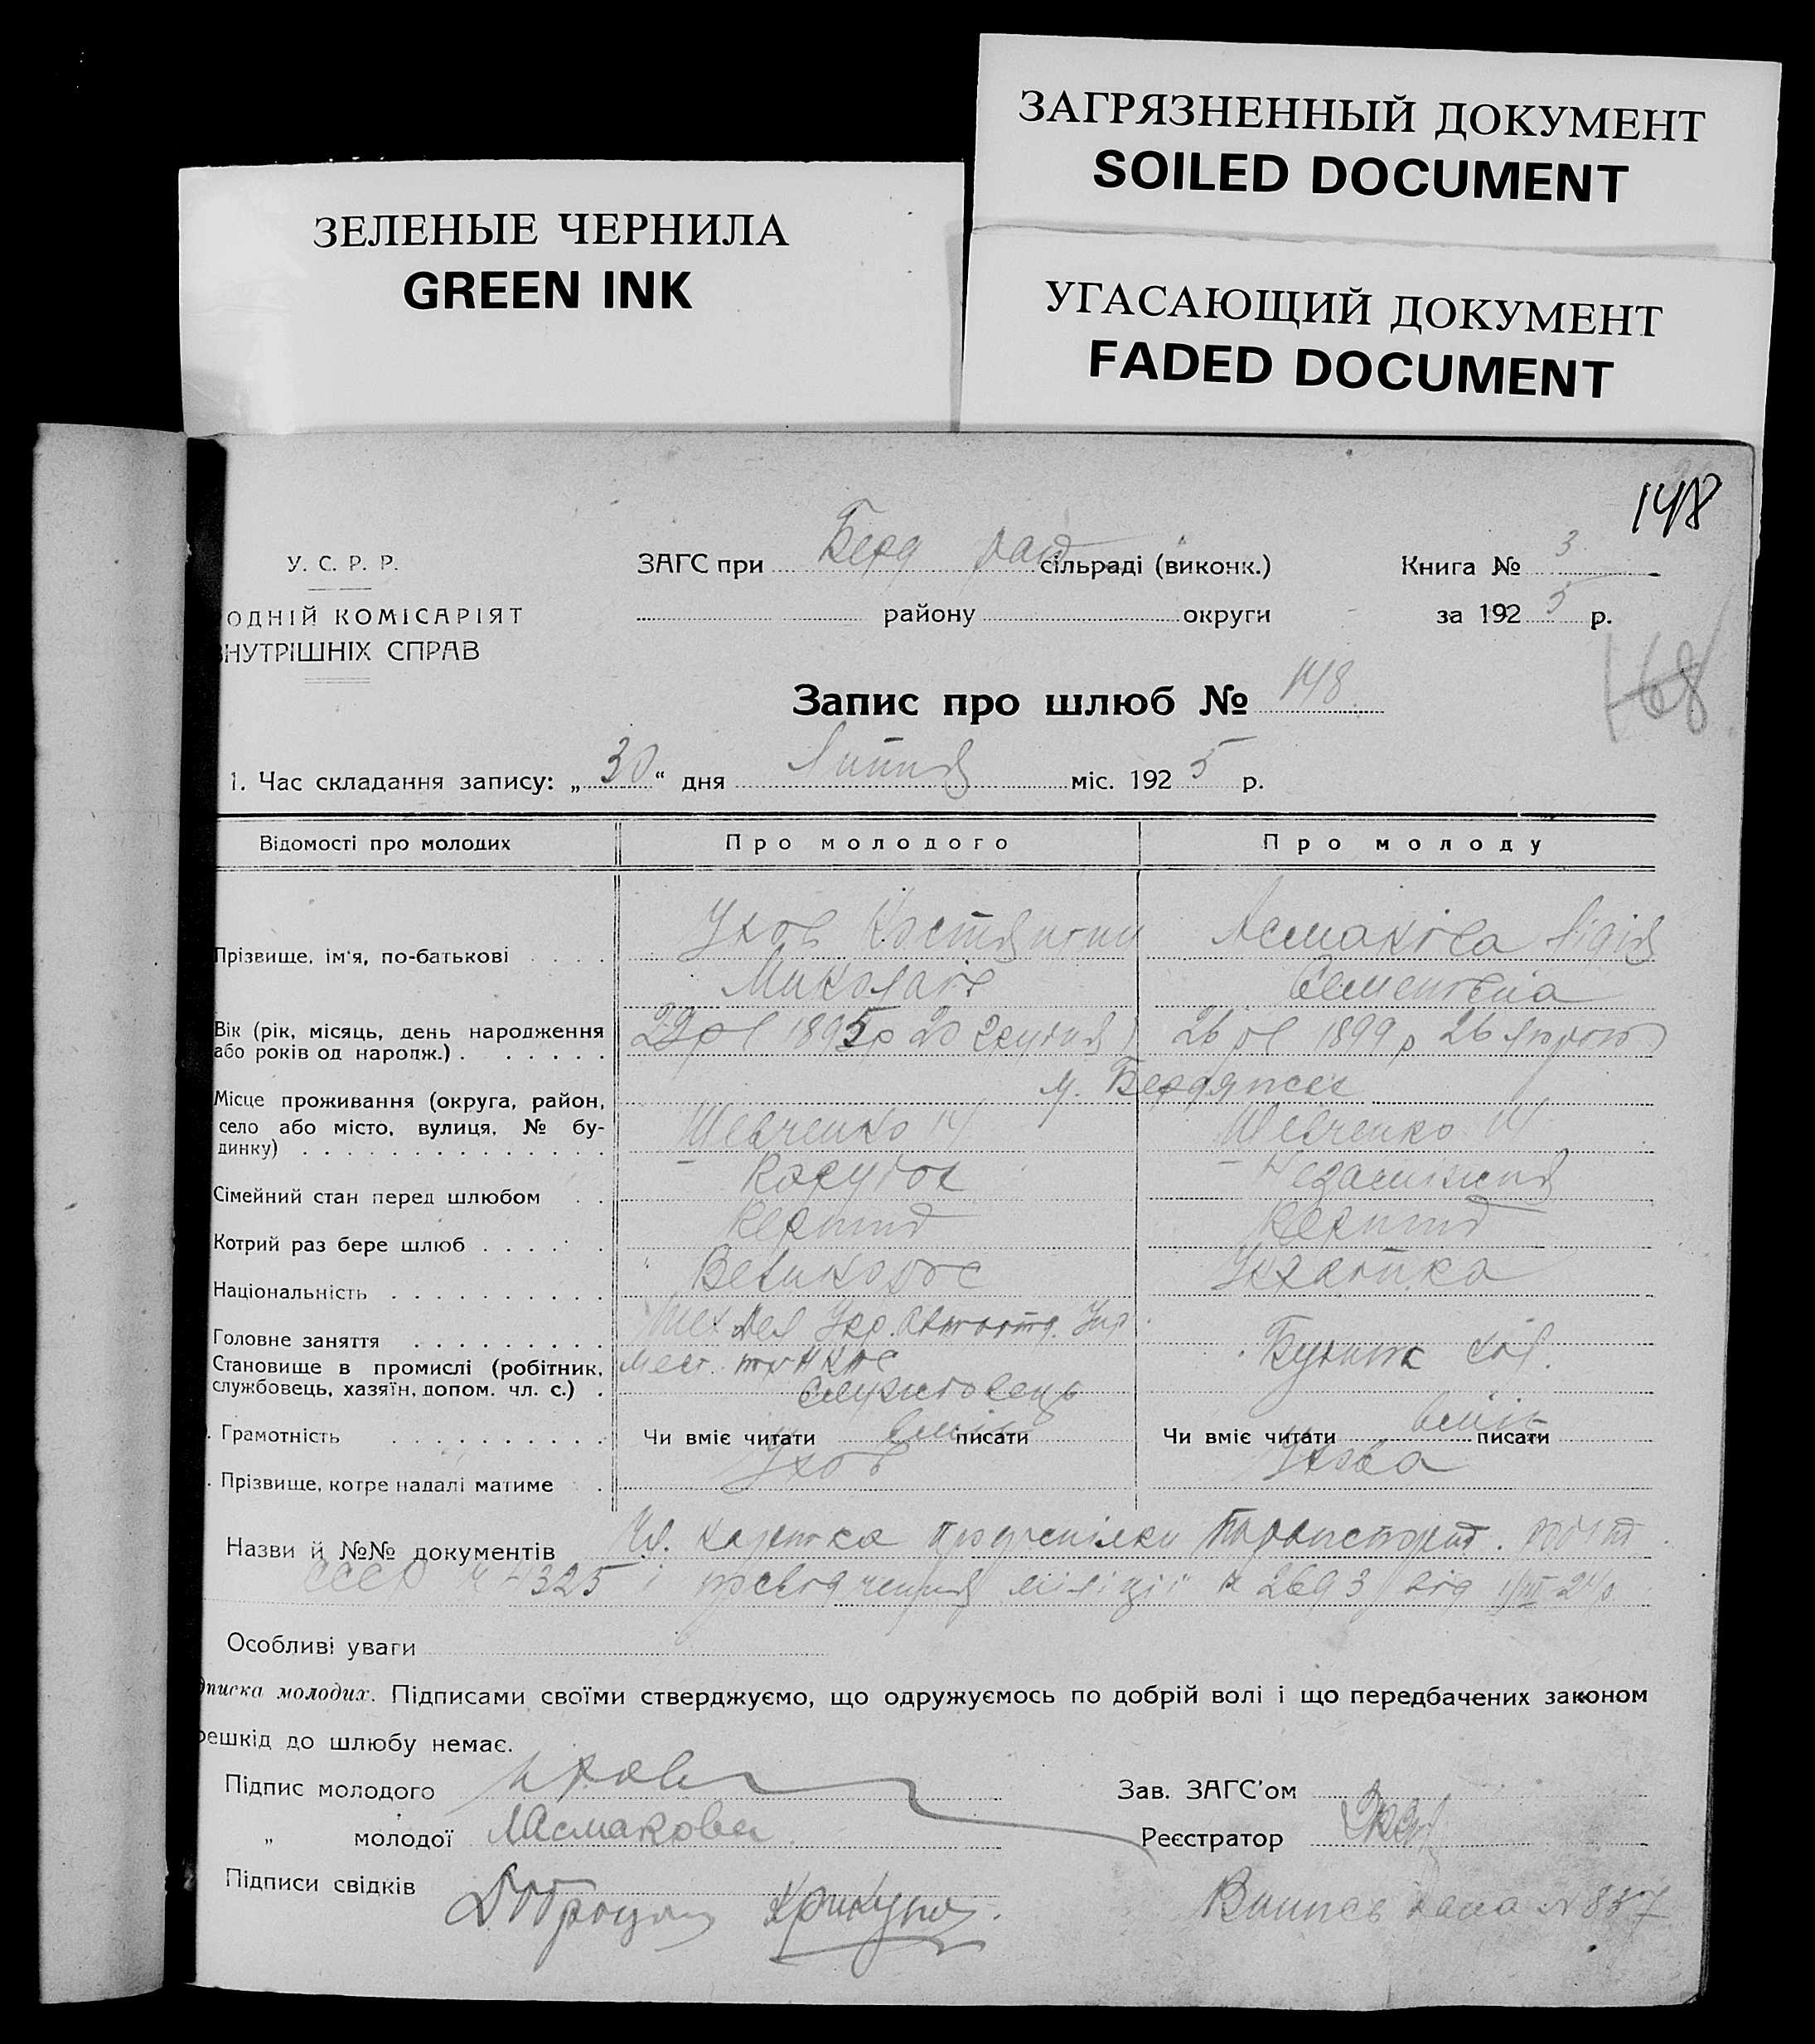 ЗАГРЯЗНЕННЫЙ ДОКУМЕНТ
SOILED DOCUMENT
ЗЕЛЕНЫЕ ЧЕРНИЛА
GREEN INK
УГАСАЮЩИЙ ДОКУМЕНТ
FADED DOCUMENT
148
У. С. Р. Р.
ОДНІЙ КОМІСАРІЯТ
НУТРІШНІХ СПРАВ
ЗАГС при Берд сільраді (виконк.)
району округи
Книга № 3
за 1925 р.
168
Запис про шлюб № 148
1. Час складання запису: „30“ дня Липня міс. 1925 р.
Відомості про молодих Про молодого Про молоду
Прізвище, ім'я, по-батькові Ухов Костянтин Асмаківа Лідія
Миколаїв Семенівна
Вік (рік, місяць, день народження або років од народж.) 1895 р 20 грудня 26 рв 1899 р 26
м. Бердянськ
Місце проживання (округа, район, село або місто, вулиця, № будинку) Шевченко 14 Шевченко 14
Сімейний стан перед шлюбом Незаміжня
Котрий раз бере шлюб Перший Перший
Національність Великорос Українка
Головне заняття Тех Укр.
Становище в промислі (робітник, службовець, хазяїн, допом. чл. с.) службовець
Грамотність Чи вміє читати вміє писати Чи вміє читати вміє писати
Прізвище, котре надалі матиме Ухов Ухова
Назви й №№ документів Чл. картка профспілки
СССР № 4325 і посвідчення міліції № 2693 від
Особливі уваги
дписка молодих. Підписами своїми стверджуємо, що одружуємось по добрій волі і що передбачених законом
решкід до шлюбу немає.
Підпис молодого Ухов
„ молодої Асмакова
Підписи свідків Крикун
Зав. ЗАГС'ом
Реєстратор
Випись дана № 857